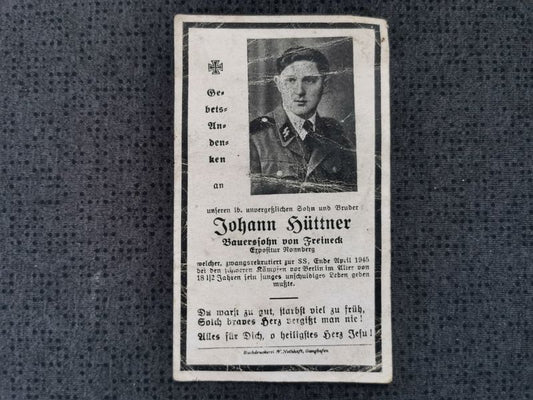 Ge-
bets-
An-
den-
ken
an
unseren lb. unvergeßlichen Sohn und Bruder
Johann Hüttner
Bauerssohn von Freineck
Expositur Nonnberg
welcher, zwangsrekrutiert zur SS, Ende April 1945
bei den schweren Kämpfen vor Berlin im Alter von
18 1|2 Jahren sein junges unschuldiges Leben geben
mußte.
Du warst zu gut, starbst viel zu früh,
Solch braves Herz vergißt man nie!
Alles für Dich, o heiligstes Herz Jesu!
Buchdruckerei Gangkofen